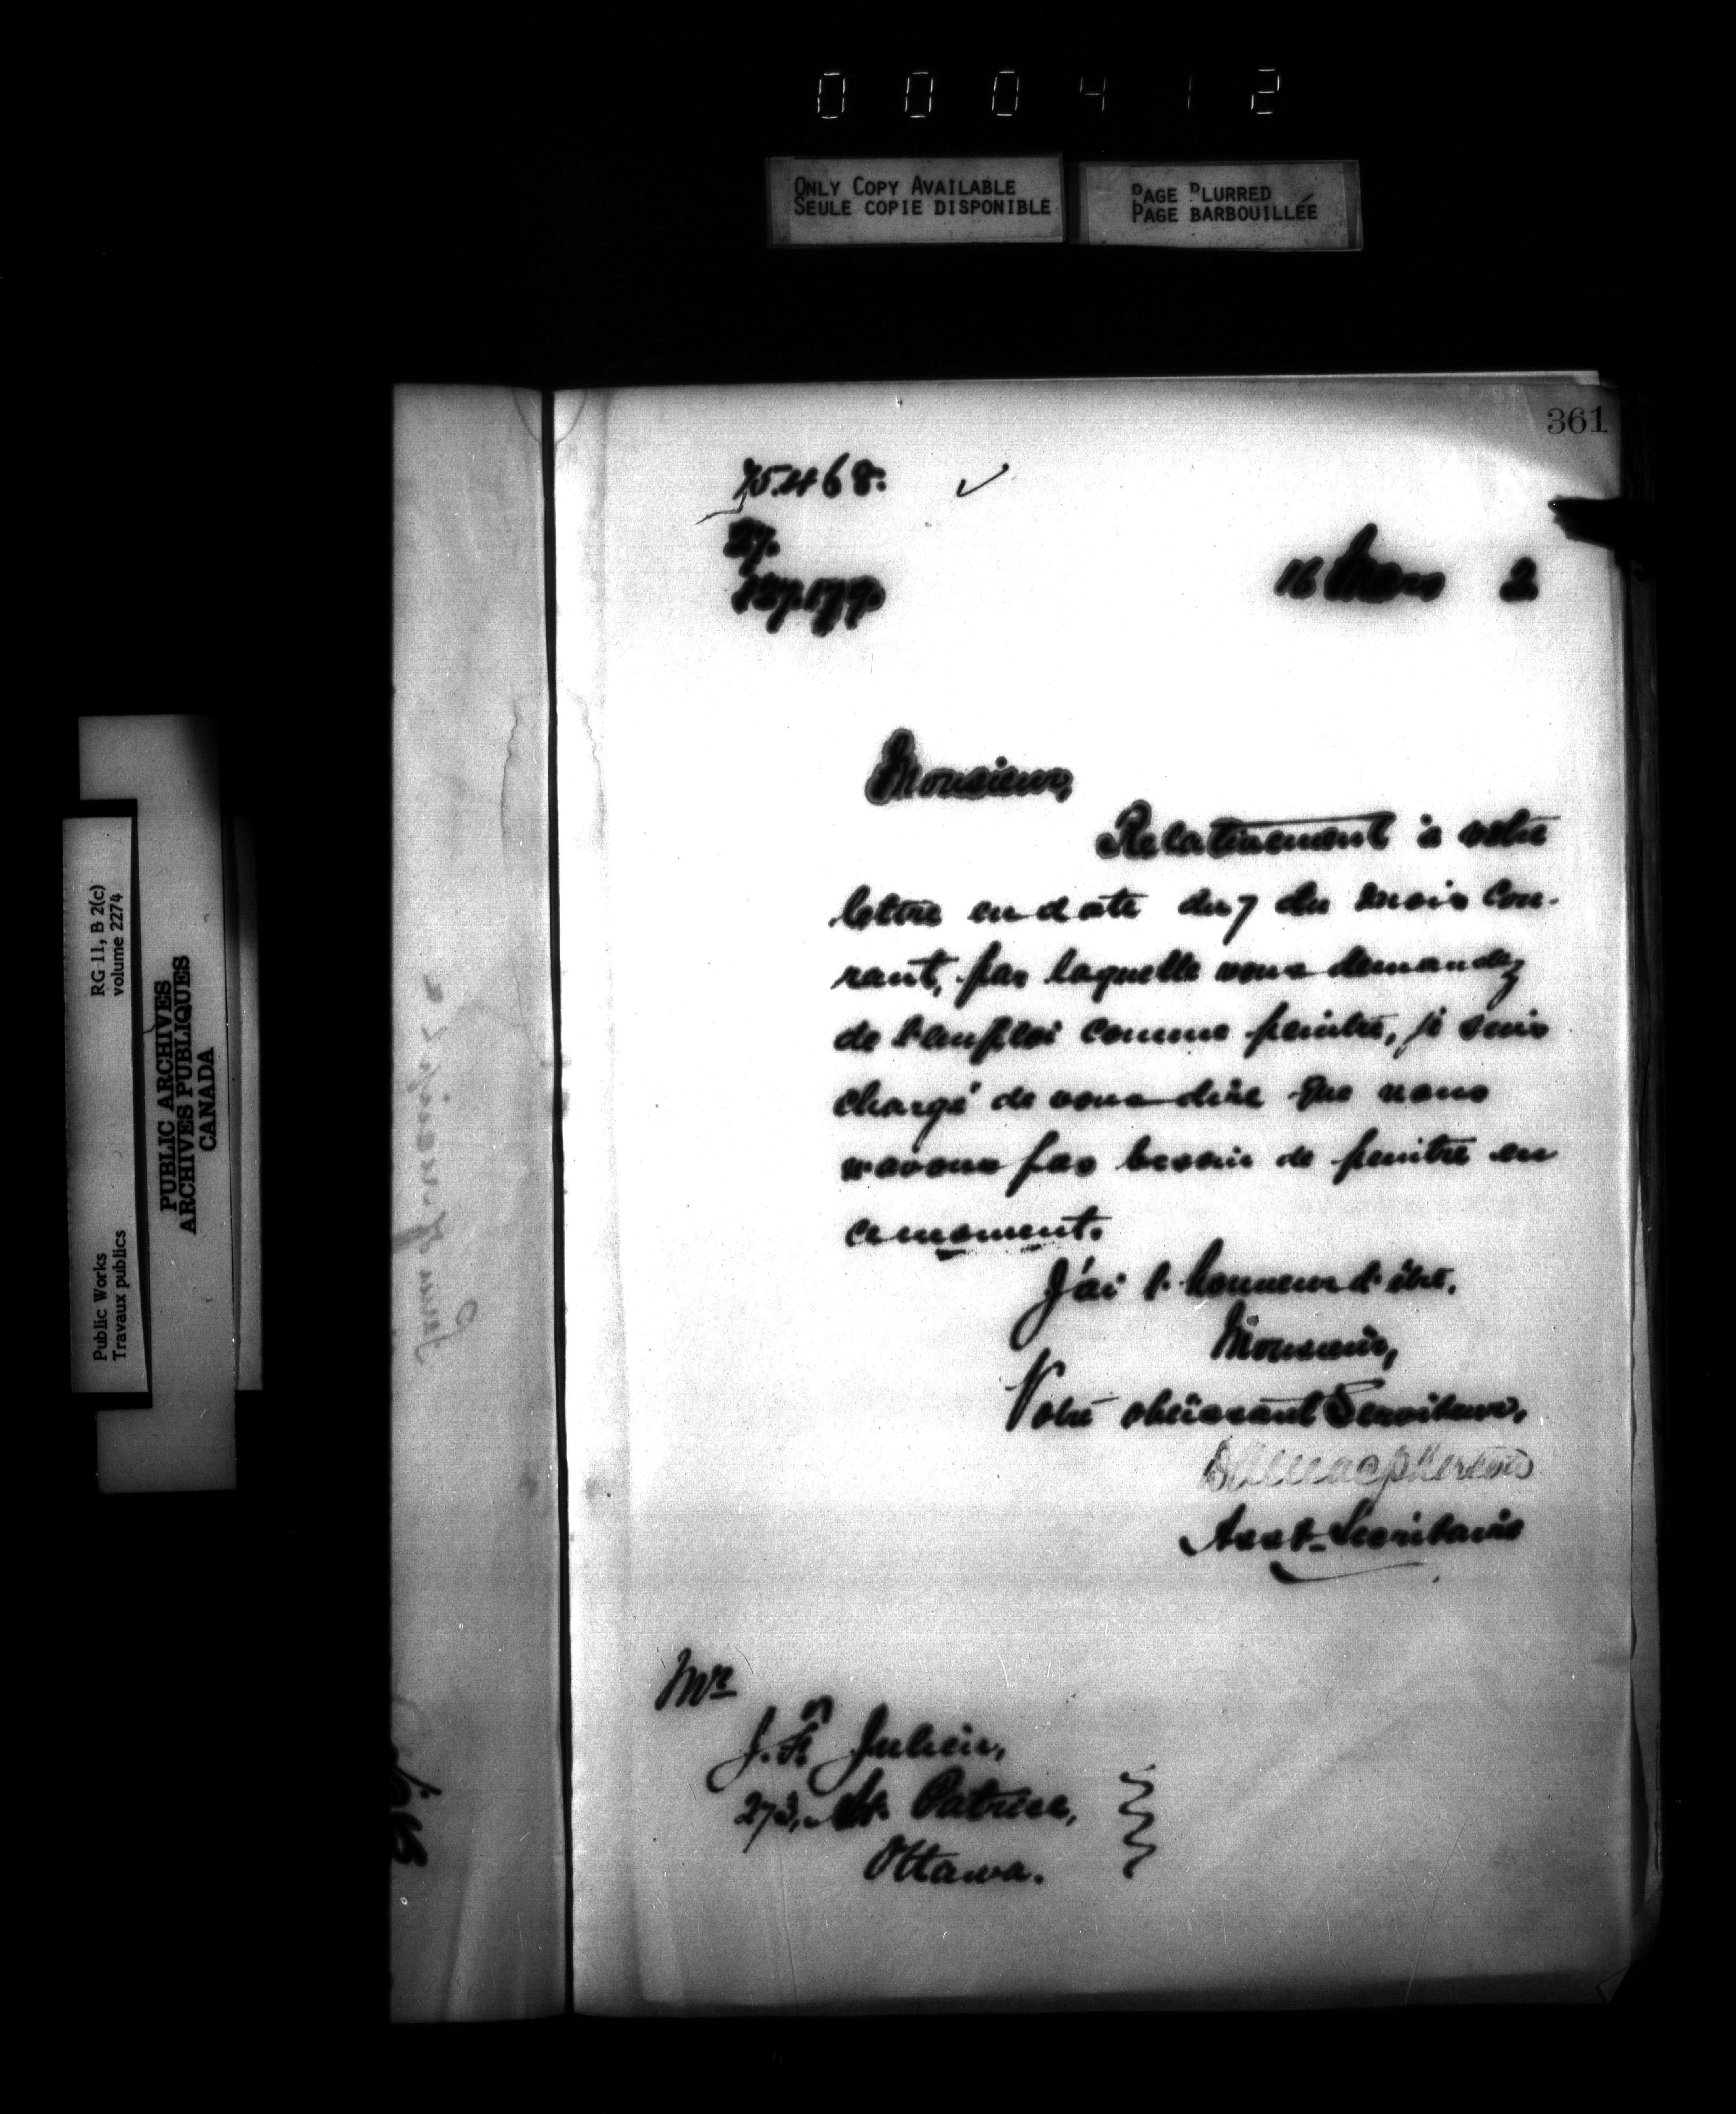 000412
ONLY COPY AVAILABLE
SEULE COPIE DISPONIBLE
PAGE BLURRED
PAGE BARBOUILLÉE
RG 11, B 2(c)
volume 2274
Public Works
Travaux publics
PUBLIC ARCHIVES
ARCHIVES PUBLIQUES
CANADA
361
75468. ✓
27.
127.179.
16 Mars 2
Monsieur,
Relativement à votre
lettre en date du 7 du mois cou-
rant, par laquelle vous demandez
de l'emploi comme peintre, je suis
chargé de vous dire que nous
n'avons pas besoin de peintre en
ce moment.
J'ai l'honneur d'être,
Monsieur,
Votre obéissant Serviteur,
Asst-Secrétaire
Mr
J. Fn Julien,
273, St. Patrice,
Ottawa.